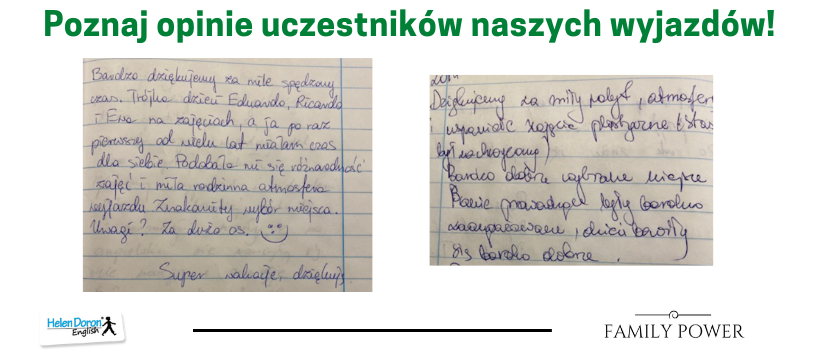 Poznaj opinie uczestników naszych wyjazdów!
Bardzo dziękujemy za miłe spędzony
czas. Trójka dzieci Eduardo, Ricardo
i Ewa na zajęciach, a ja po raz
pierwszy od wielu lat miałam czas
dla siebie. Podobała mi się różnorodność
zajęć i miła rodzinna atmosfera
wyjazdu. Znakomity wybór miejsca.
Uwagi? Za dużo os.
Super wakacje, dziękuję
Dziękujemy za miły pobyt, atmosfer
i wspaniałe zajęcia plastyczne (Staś
był zachwycony)
Bardzo dobrze wybrane miejsce
Panie prowadzące były bardzo
zaangażowane, dzieci bawiły
się bardzo dobrze.
Helen Doron
English
FAMILY POWER